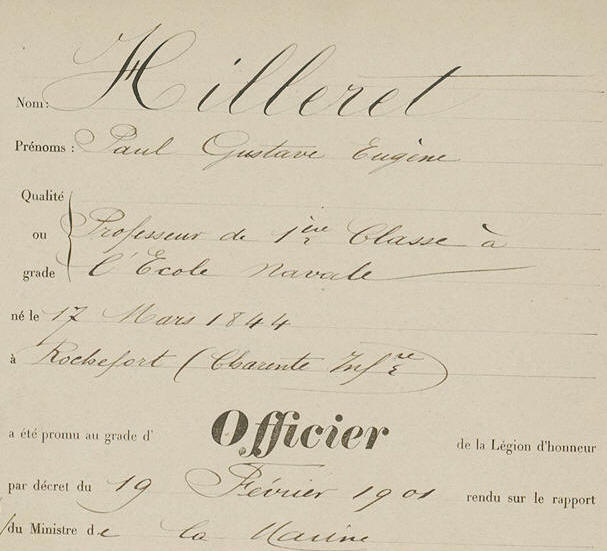 Nom: Hilleret
Prénoms : Paul Gustave Eugène
Qualité
ou Professeur de 1ère Classe à
grade l'Ecole Navale
né le 17 Mars 1844
à Rochefort (Charente Infre)
a été promu au grade d' Officier de la Légion d'honneur
par décret du 19 Février 1901 rendu sur le rapport
du Ministre de la Marine